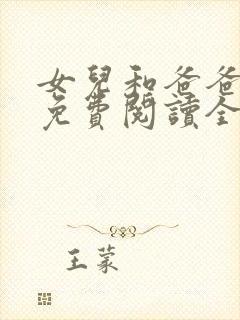 女兒和爸爸
免費閱讀全
王蒙